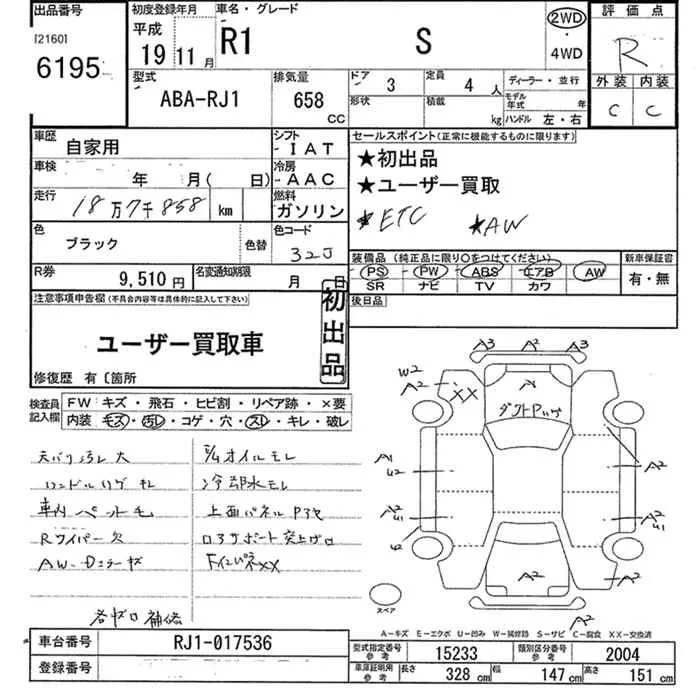 出品番号 初度登録年月 車名・グレード 評価点
[2160] 平成 2WD
6195 19年11月 R1 S ・ R
4WD
型式 排気量 ドア 3 定員 4人 ディーラー・並行 外装 内装
ABA-RJ1 658 CC 形状 積載 kg モデル年式 年 C C
ハンドル 左・右
車歴 自家用 シフト IAT セールスポイント(正常に機能するものに限ります)
車検 年 月( 日) 冷房 AAC ★初出品
走行 18万7千858 km 燃料 ガソリン ★ユーザー買取
★ETC ★AW
色 ブラック 色替 色コード 32J
装備品(純正品に限り○をつけてください) 新車保証書
PS PW ABS エアB AW 有・無
SR ナビ TV カワ
R券 9,510円 名変通知期限 月 日 後日品
注意事項申告欄(不具合内容等は具体的に記入して下さい) 初出品
ユーザー買取車
修復歴 有〔箇所
検査員記入欄 FW キズ・飛石・ヒビ割・リペア跡・×要
内装 モズ・汚レ・コゲ・穴・スレ・キレ・破レ
天バリ汚レ大
ハンドルハゲ キレ
車内 ペット毛 上面パネル
Rワイパー欠
冷却水モレ
A3 A2 A3
W2
A2 XX A
A1 U2 A2
A2 U1 A2 U1
A2 A2
A2
スペア
A-キズ E-エクボ U-凹み W-補修跡 S-サビ C-腐食 XX-交換済
車台番号 RJ1-017536 型式指定番号 参考 15233 類別区分番号 参考 2004
登録番号 車庫証明用 参考 長さ 328 cm 幅 147 cm 高さ 151 cm